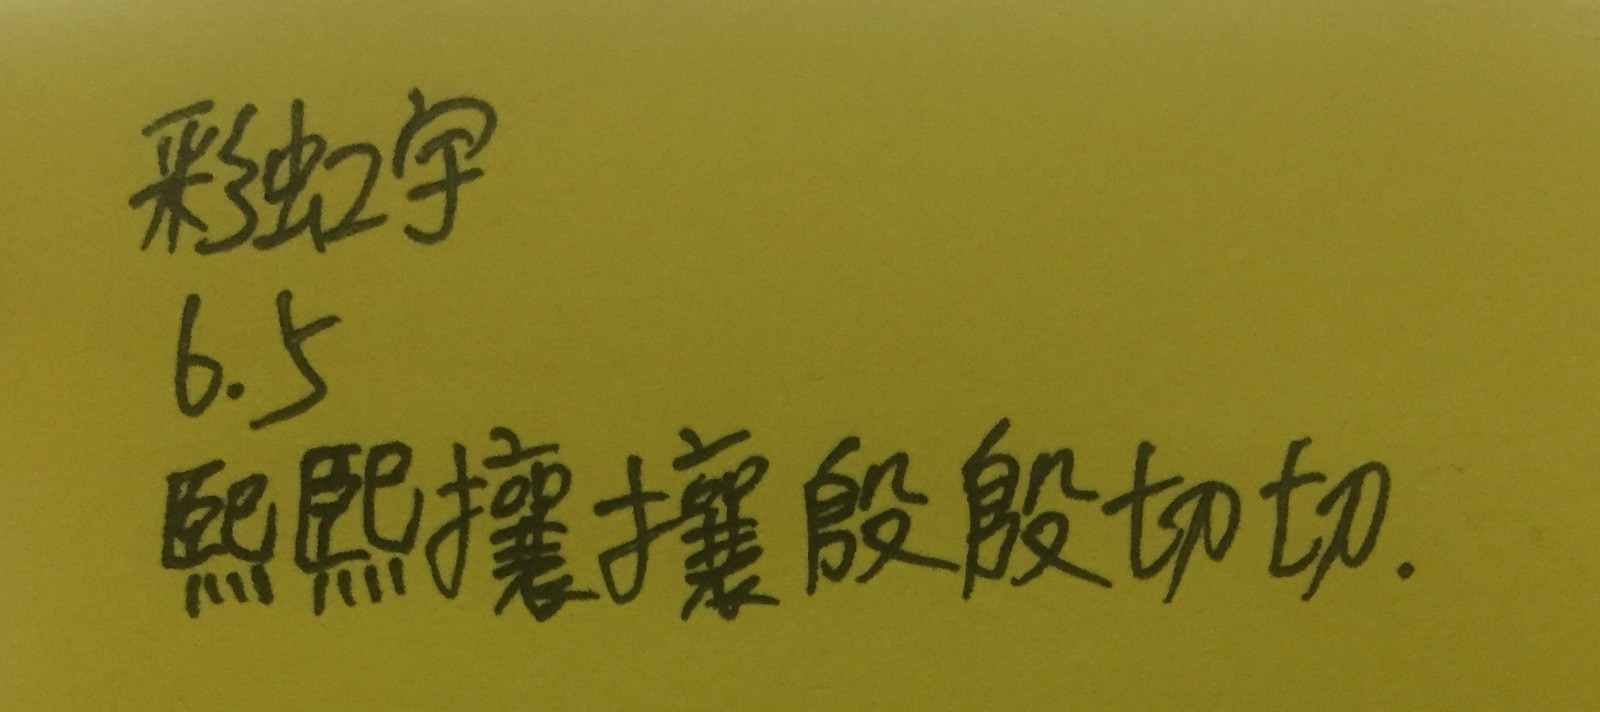 彩虹宇
6.5
熙熙攘攘殷殷切切.